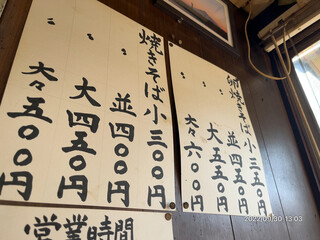 焼きそば小三〇〇円
〃 並四〇〇円
〃 大四五〇円
〃 大々五〇〇円
卵焼きそば小三五〇円
〃 並四五〇円
〃 大五五〇円
〃 大々六〇〇円
営業時間
13:03